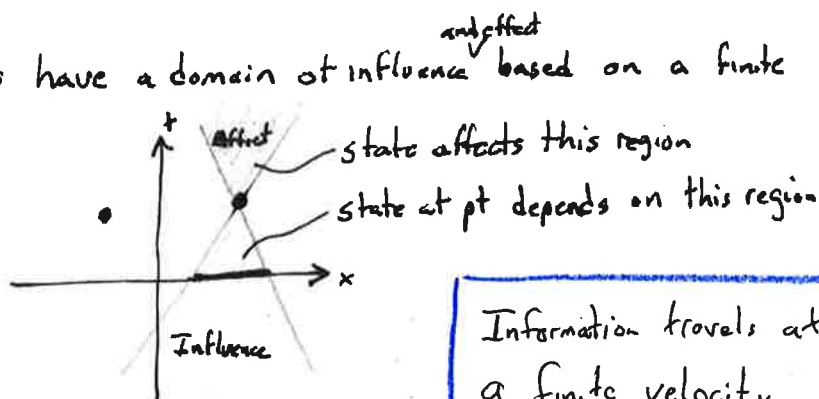 and effect
s have a domain of influence based on a finite
t
Affect
state affects this region
state at pt depends on this region
x
Influence
Information travels at
a finite velocity